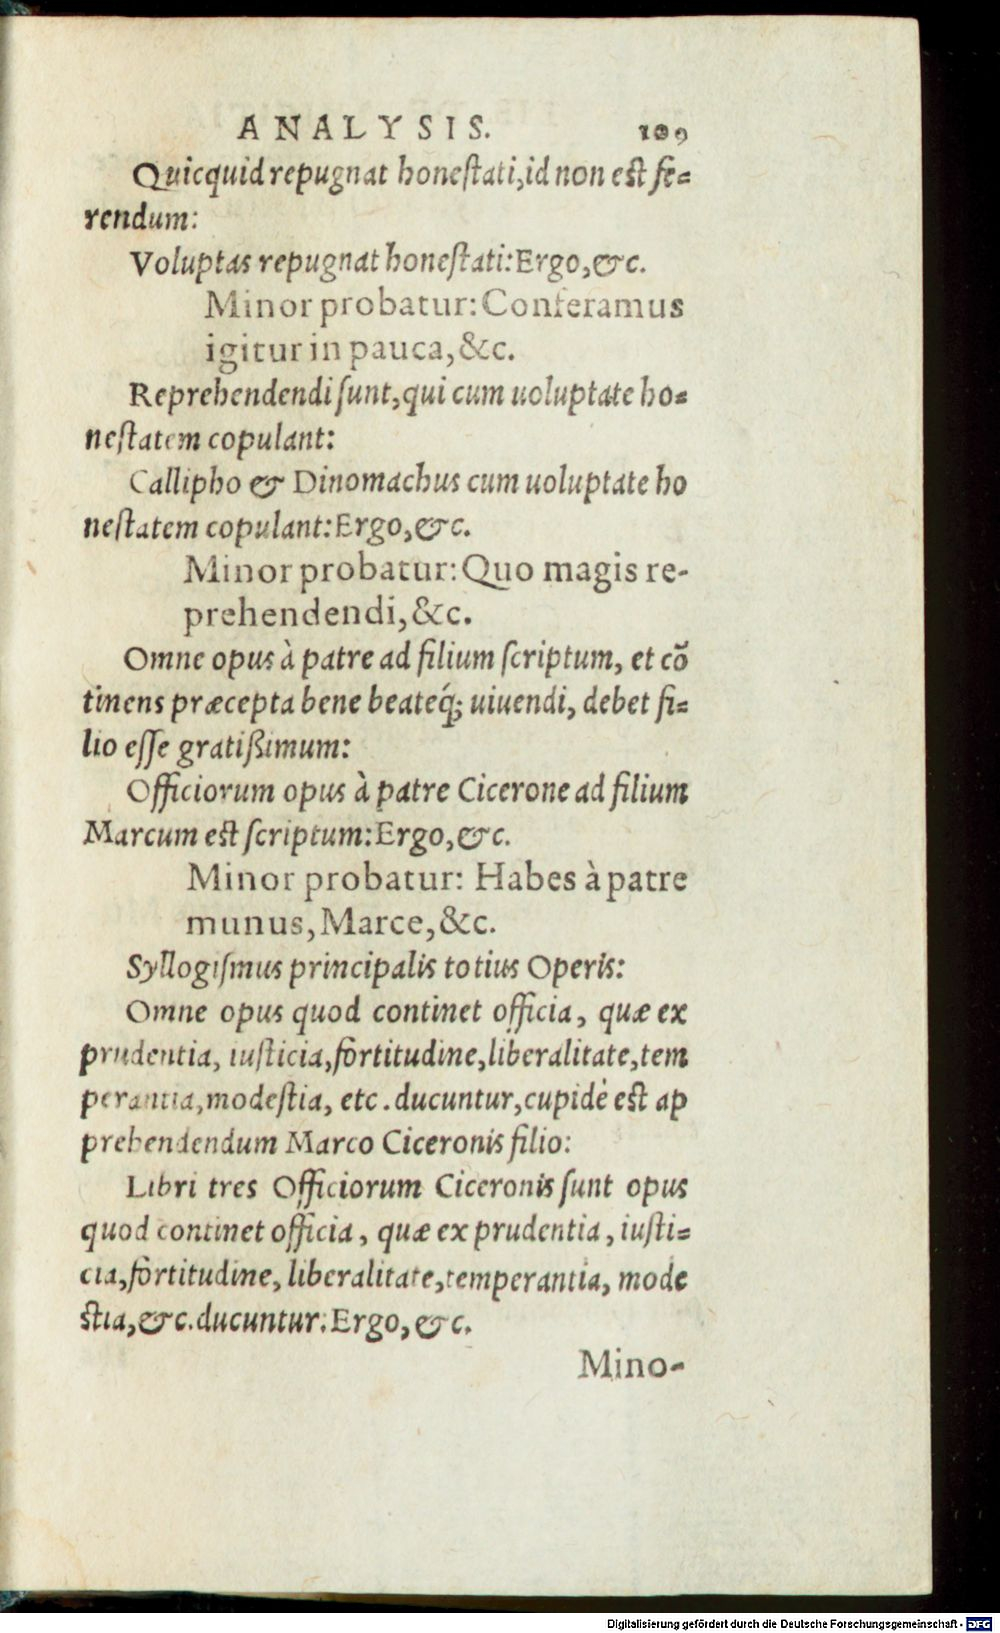 ANALYSIS. 109
Quicquid repugnat honeſtati, id non eſt fe-
rendum:
Voluptas repugnat honeſtati: Ergo, &c.
Minor probatur: Conferamus
igitur in pauca, &c.
Reprehendendi ſunt, qui cum uoluptate ho-
neſtatem copulant:
Callipho & Dinomachus cum uoluptate ho
neſtatem copulant: Ergo, &c.
Minor probatur: Quo magis re-
prehendendi, &c.
Omne opus à patre ad filium ſcriptum, et cõ
tinens præcepta bene beateq́; uiuendi, debet fi-
lio eſſe gratißimum:
Officiorum opus à patre Cicerone ad filium
Marcum eſt ſcriptum: Ergo, &c.
Minor probatur: Habes à patre
munus, Marce, &c.
Syllogiſmus principalis totius Operis:
Omne opus quod continet officia, quæ ex
prudentia, iuſticia, fortitudine, liberalitate, tem
perantia, modeſtia, etc. ducuntur, cupidè eſt ap
prehendendum Marco Ciceronis filio:
Libri tres Officiorum Ciceronis ſunt opus
quod continet officia, quæ ex prudentia, iuſti-
cia, fortitudine, liberalitate, temperantia, mode
ſtia, &c. ducuntur. Ergo, &c.
Mino-
Digitalisierung gefördert durch die Deutsche Forschungsgemeinschaft - DFG